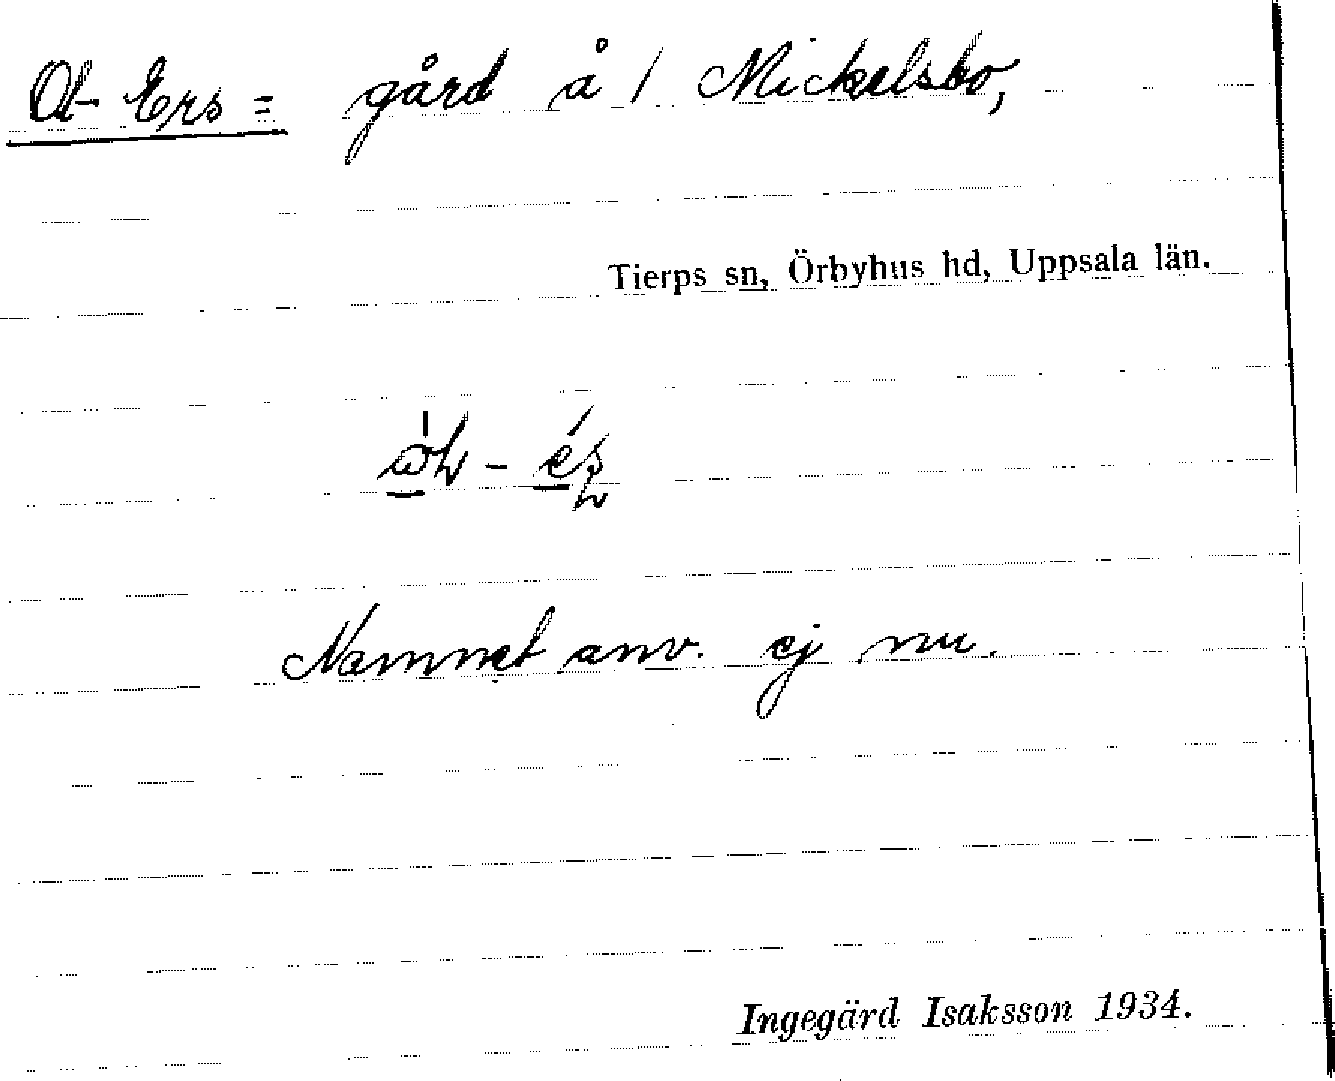 Ol-Ers = gård å 1 Mickelsbo,
Tierps sn, Örbyhus hd, Uppsala län.
Namnet anv. ej nu.
Ingegärd Isaksson 1934.